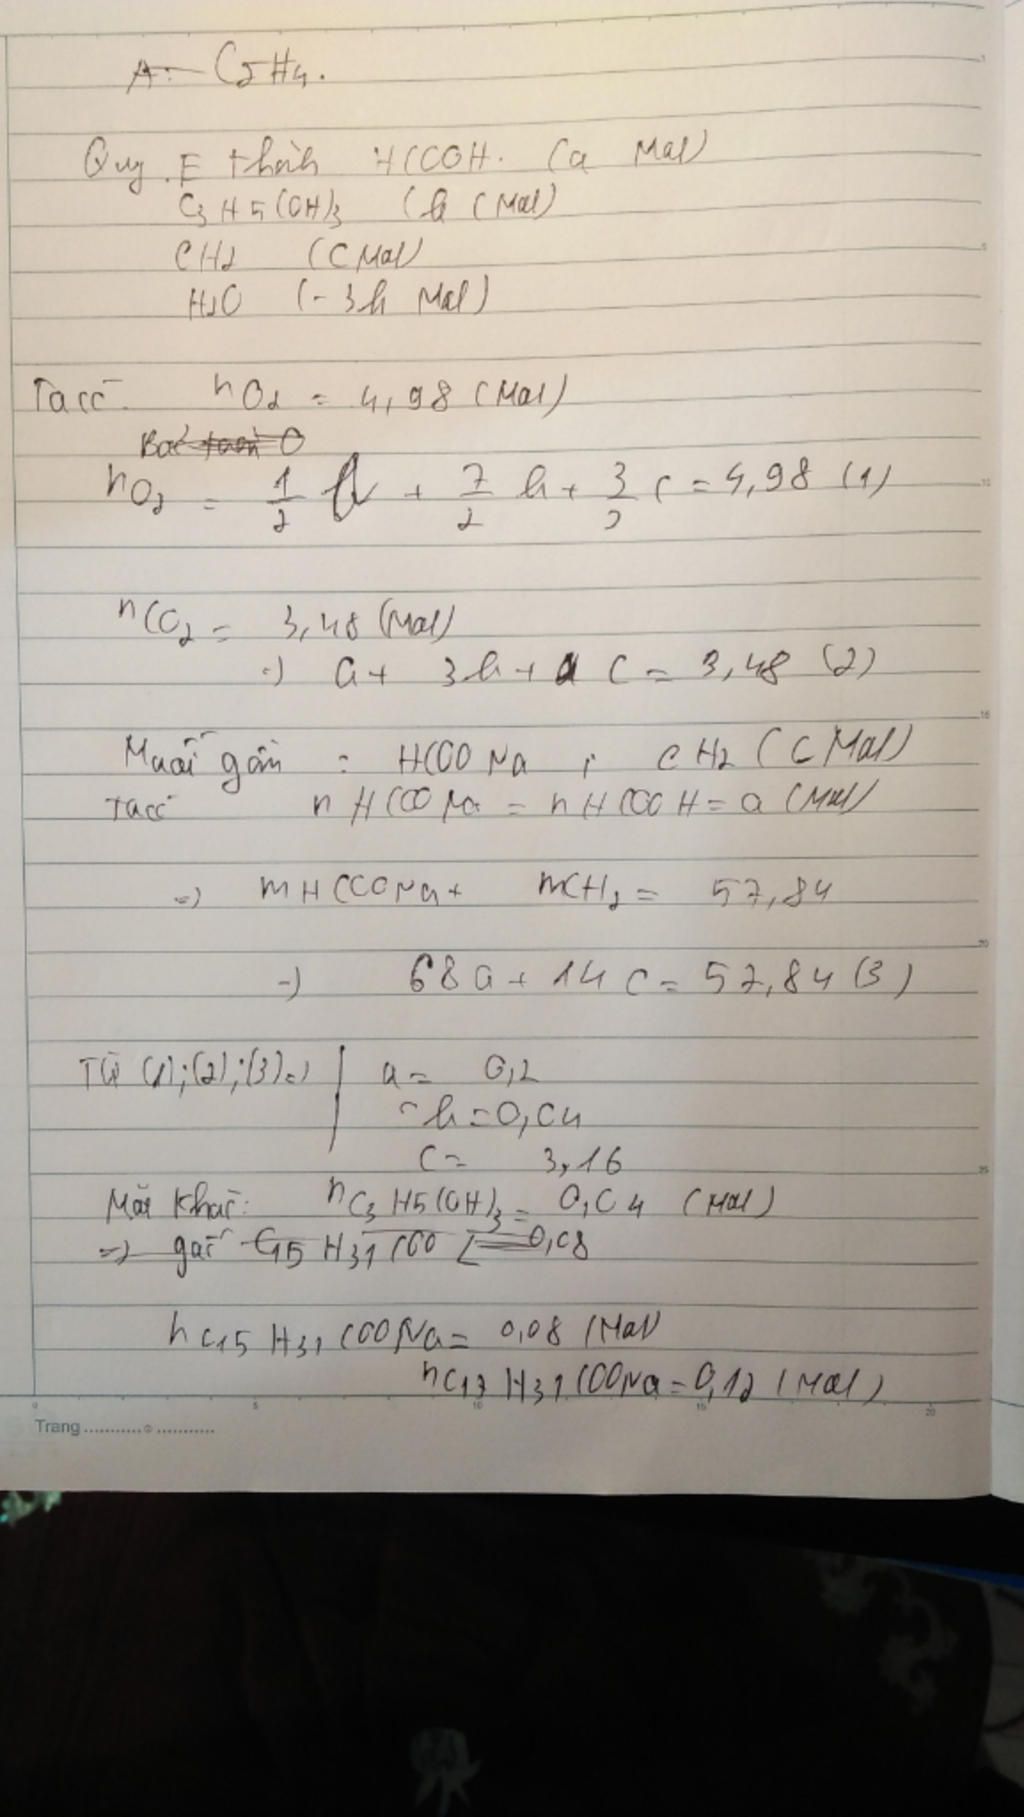 A: C2H4.
Quy E thành HCOOH. (a mol)
C3H5(OH)3 (b (mol)
CH2 (c mol)
H2O (-3b mol)
Ta có nO2 = 4,98 (mol)
Bảo toàn O
nO2 = 1/2 a + 7/2 b + 3/2 c = 4,98 (1)
nCO2 = 3,48 (mol)
=) a + 3b + c = 3,48 (2)
Muối gồm : HCOONa ; CH2 (c mol)
Ta có nHCOONa = nHCOOH = a (mol)
=) mHCOONa + mCH2 = 57,84
=) 68a + 14c = 57,84 (3)
Từ (1);(2);(3)=) a = 0,2
b = 0,04
c = 3,16
Mặt khác: nC3H5(OH)3 = 0,04 (mol)
=) gốc C15H31COO = 0,08
nC15H31COONa = 0,08 (mol)
nC17H31COONa = 0,12 (mol)
Trang